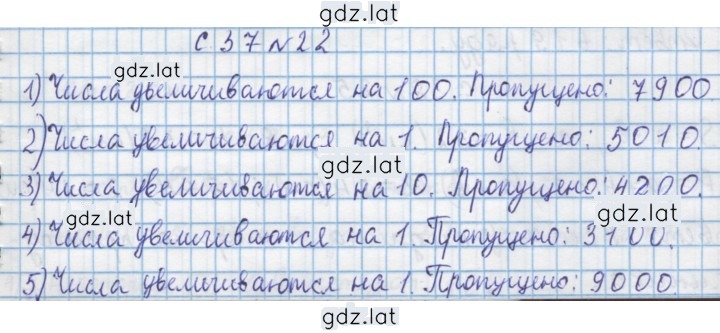 gdz.lat
с 37 № 22
gdz.lat
1) Числа увеличиваются на 100. Пропущено: 7900
2) Числа увеличиваются на 1. Пропущено: 5010.
gdz.lat
3) Числа увеличиваются на 10. Пропущено: 4200.
gdz.lat gdz.lat
4) Числа увеличиваются на 1. Пропущено: 3100.
5) Числа увеличиваются на 1. Пропущено: 9000.
gdz.lat